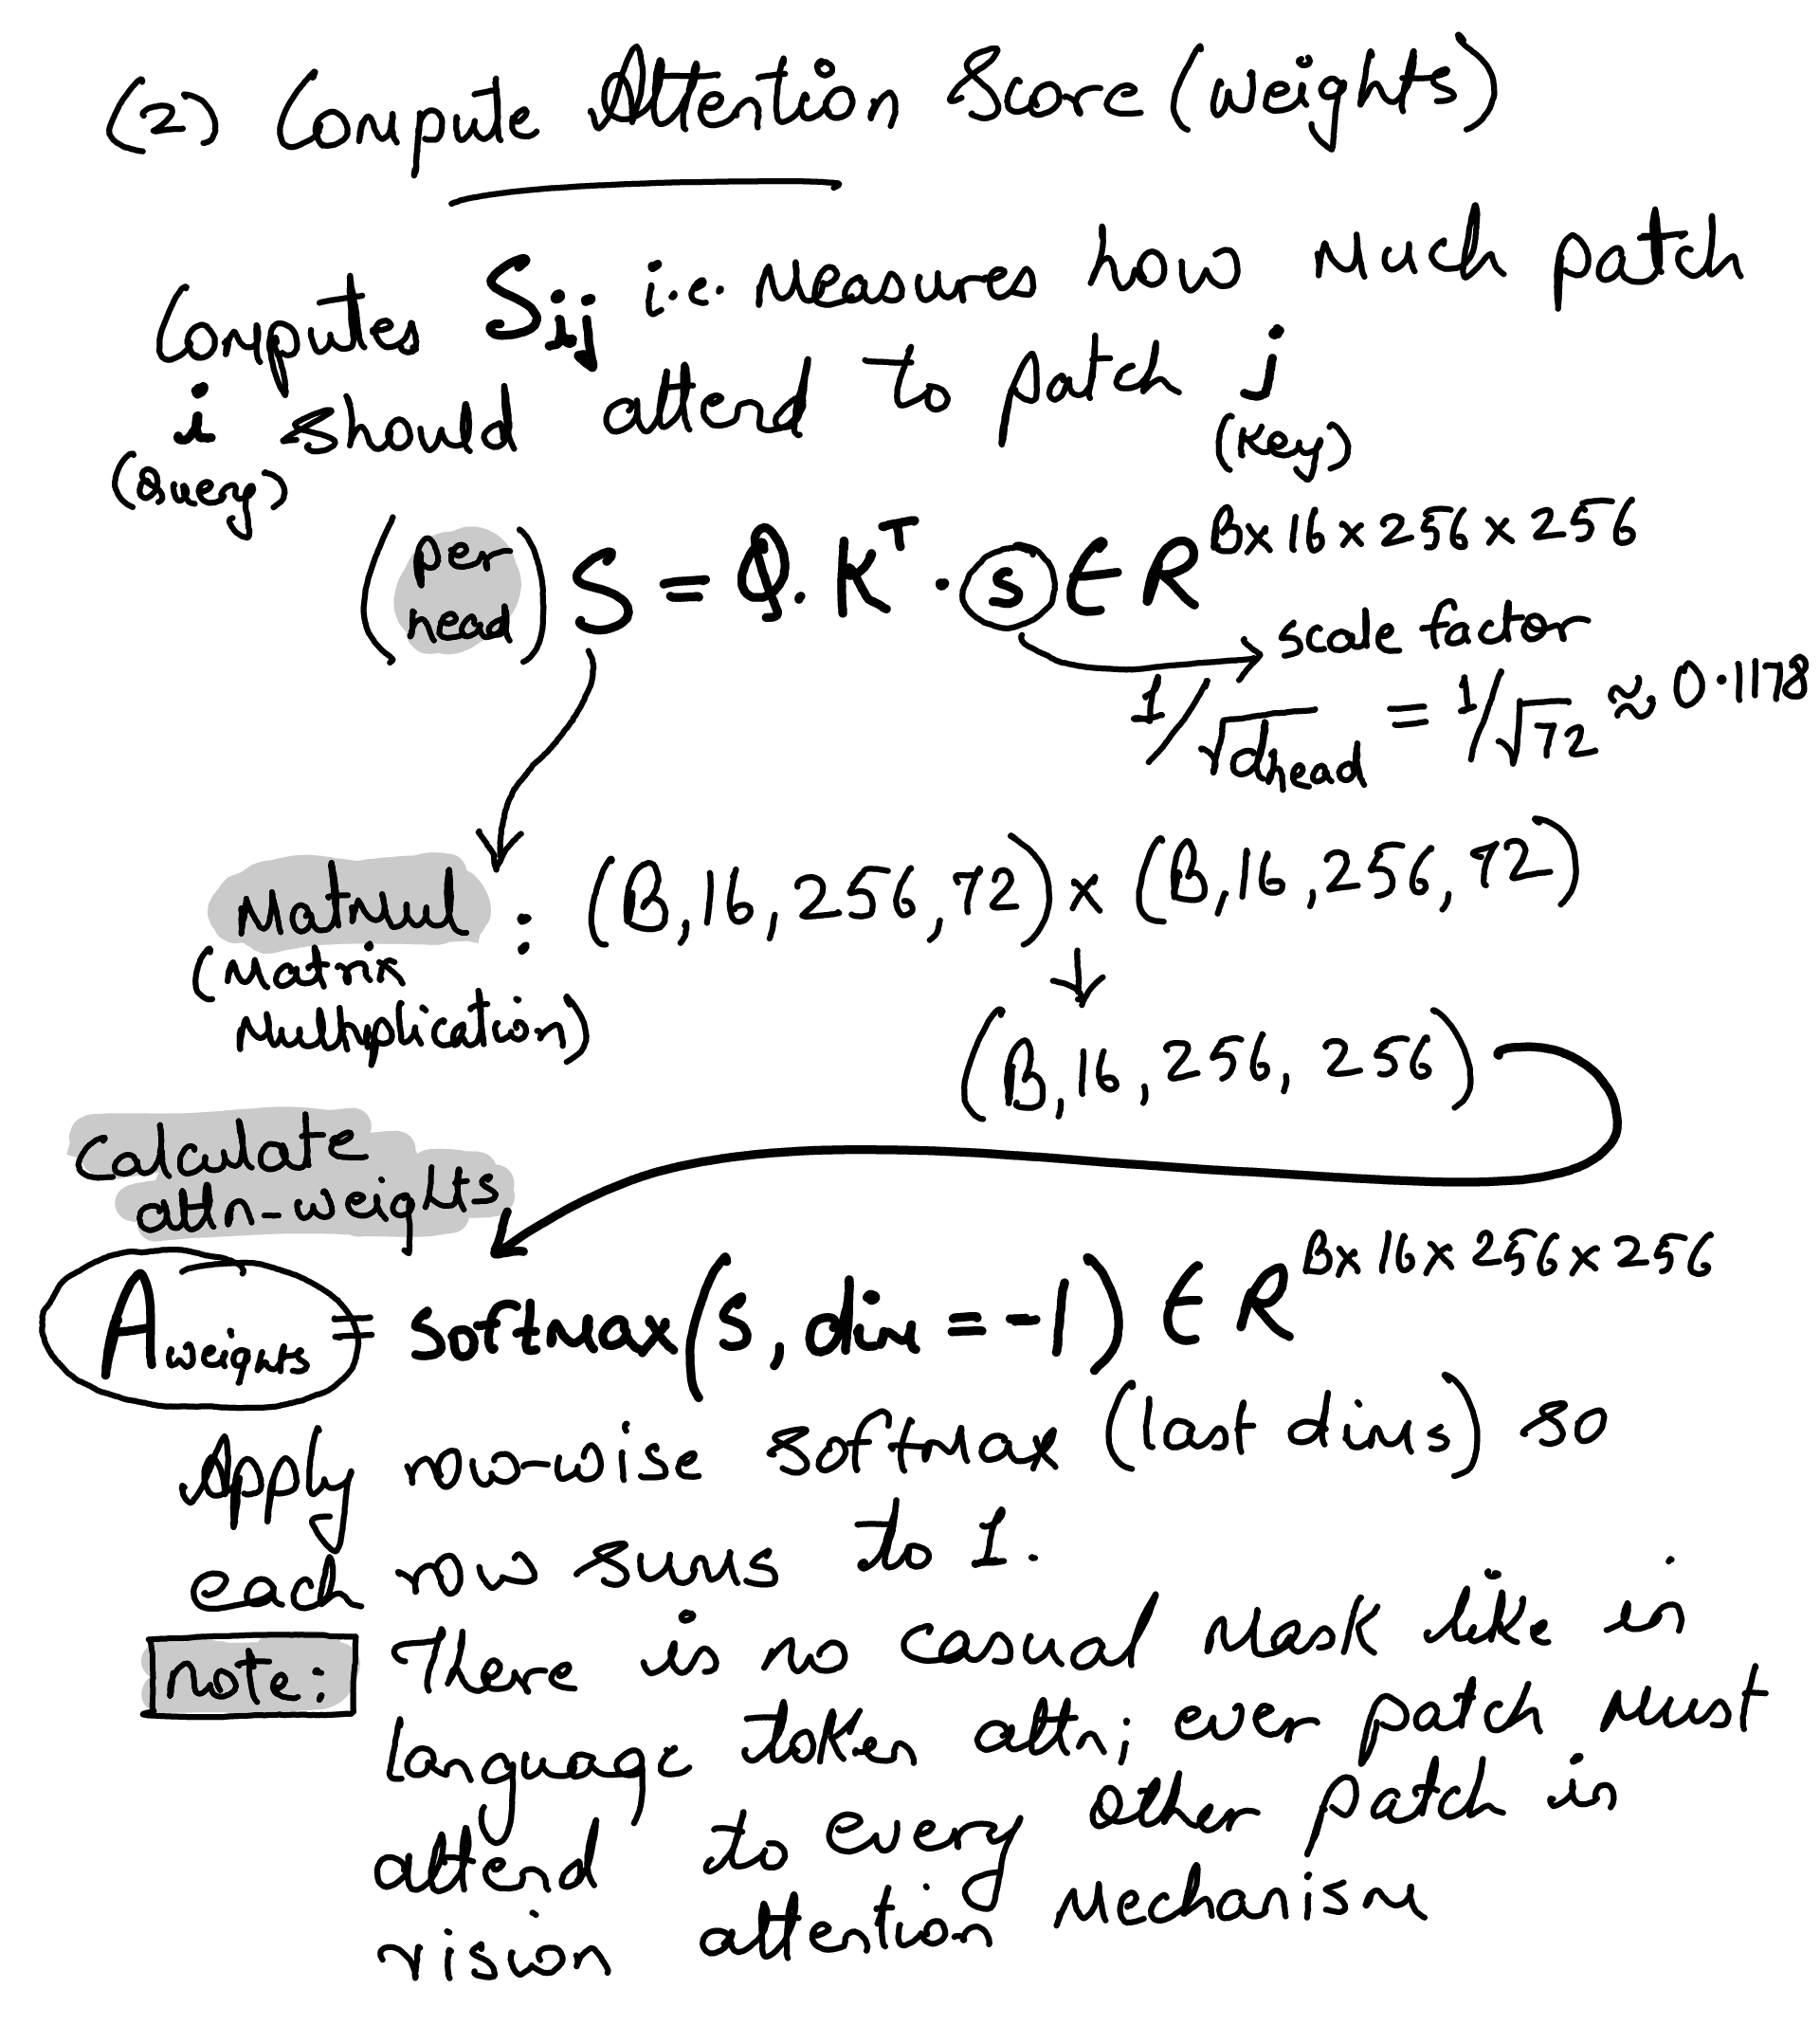 (2) Compute Attention Score (Weights)
Computes Sij i.e. measures how much patch
i should attend to patch j
(Query) (Key)
(per head) S = Q. K^T · s ∈ R^B×16×256×256
scale factor
1/√dhead = 1/√72 ≈ 0.1178
MatMul : (B,16,256,72) × (B,16,256,72)
(Matrix
Multiplication)
↓
(B,16,256,256)
Calculate
attn-weights
Aweights = softmax(S, dim = -1) ∈ R^B×16×256×256
Apply row-wise softmax (last dims) so
each row sums to 1.
note: There is no casual mask like in
language token attn; ever patch must
attend to every other patch in
vision attention mechanism